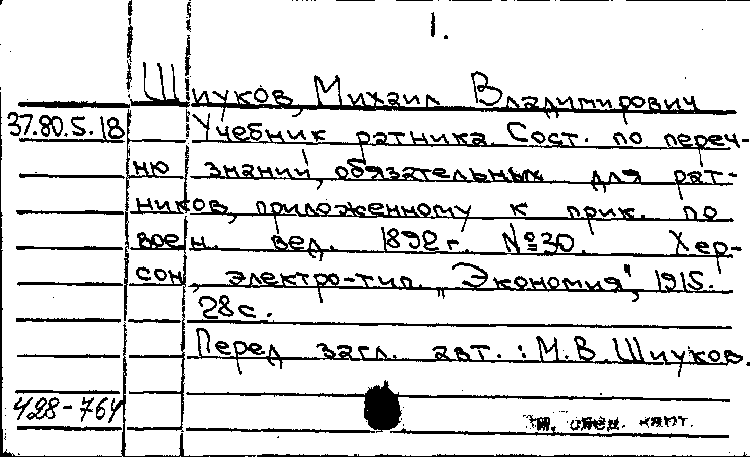 1.
Шиуков, Михаил Владимирович
37.80.5.18
Учебник ратника. Сост. по переч-
ню знаний, обязательных для рат-
ников, приложенному к прик. по
воен. вед. 1892 г. № 30. Хер-
сон, электро-тип. „Экономия", 1915.
28 с.
Перед загл. авт.: М.В. Шиуков.
428-764
опец. карт.